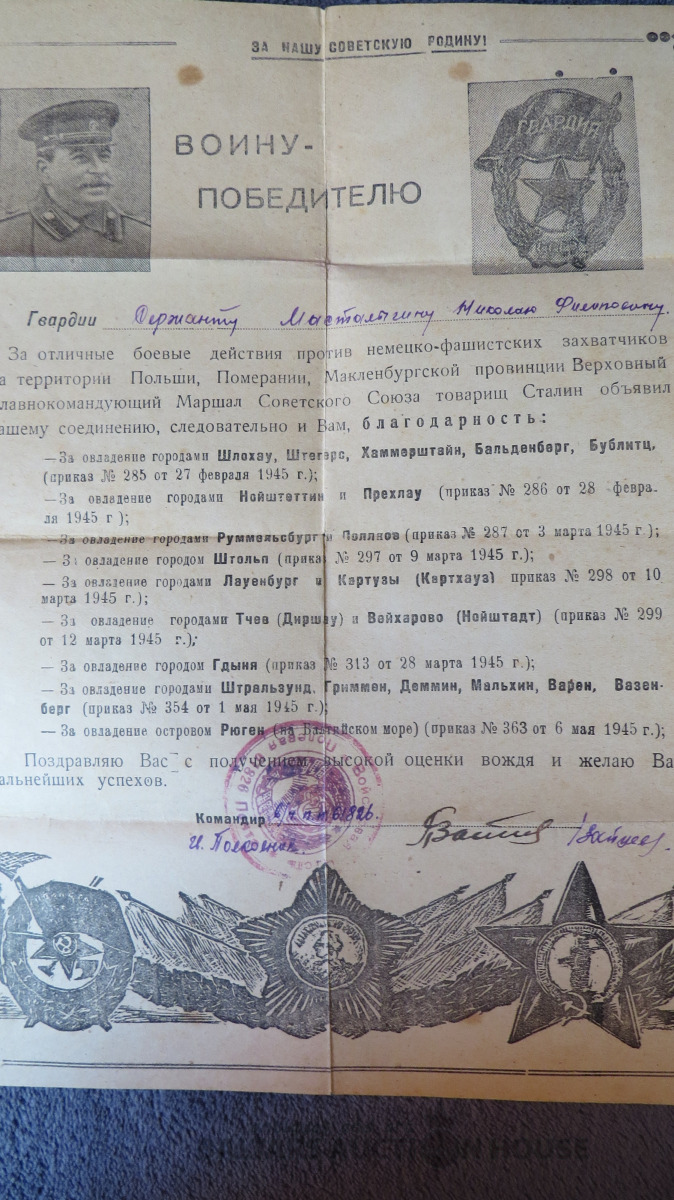 ЗА НАШУ СОВЕТСКУЮ РОДИНУ!
ГВАРДИЯ
ВОИНУ-
ПОБЕДИТЕЛЮ
Гвардии Сержанту Масталыгину Николаю Филиповичу.
За отличные боевые действия против немецко-фашистских захватчиков
а территории Польши, Померании, Макленбургской провинции Верховный
лавнокомандующий Маршал Советского Союза товарищ Сталин объявил
ашему соединению, следовательно и Вам, благодарность:
—За овладение городами Шлохау, Штегерс, Хаммерштайн, Бальденберг, Бублитц,
(приказ № 285 от 27 февраля 1945 г.);
—За овладение городами Нойштеттин и Прехлау (приказ № 286 от 28 февра-
ля 1945 г );
—За овладение городами Руммельсбург и Поллнов (приказ № 287 от 3 марта 1945 г );
— За овладение городом Штольп (приказ № 297 от 9 марта 1945 г.);
— За овладение городами Лауенбург и Картузы (Картхауз) приказ № 298 от 10
марта 1945 г.);
— За овладение городами Тчев (Диршау) и Вейхарово (Нойштадт) (приказ № 299
от 12 марта 1945 г.);
— За овладение городом Гдыня (приказ № 313 от 28 марта 1945 г.);
— За овладение городами Штральзунд, Гриммен, Деммин, Мальхин, Варен, Везен-
берг (приказ № 354 от 1 мая 1945 г.);
— За овладение островом Рюген (на Балтийском море) (приказ № 363 от 6 мая 1945 г.);
Поздравляю Вас с получением высокой оценки вождя и желаю Ва
альнейших успехов.
Командир
Полковник
AUCTION HOUSE